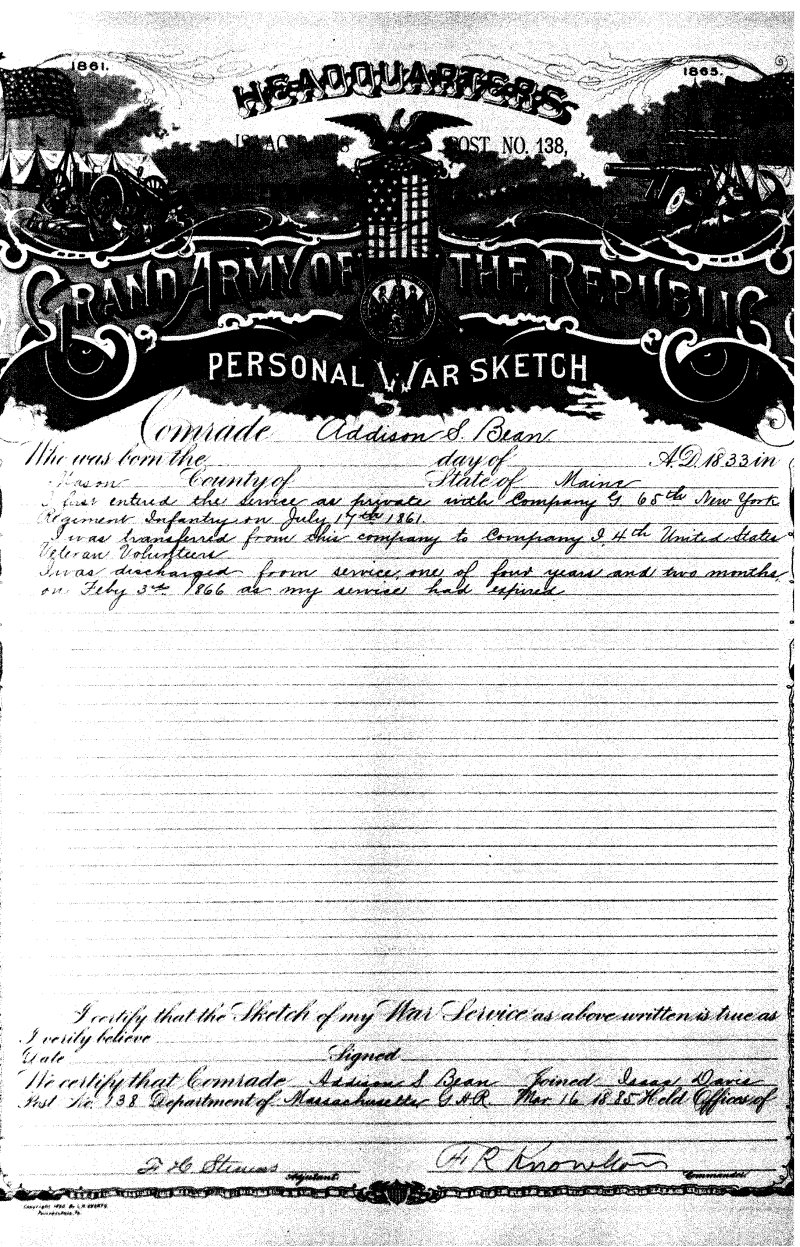 1861.
1865.
HEADQUARTERS
POST NO. 138,
GRAND ARMY OF THE REPUBLIC
PERSONAL WAR SKETCH
Comrade Addison S. Bean
Who was born the day of A.D. 1833 in
Mason County of State of Maine
I first entered the service as private with Company G 65th New York
Regiment Infantry on July 17th 1861.
I was transferred from this company to Company I. 4th United States
Veteran Volunteers
I was discharged from service, one of four years and two months
on Feby 3rd 1866 as my service had expired
I certify that the Sketch of my War Service as above written is true as
I verily believe
Date Signed
We certify that Comrade Addison S Bean Joined Isaac Davis
Post No. 138 Department of Massachusetts G.A.R. Mar 16 1885 Held Offices of
F H Stevens F R Knowlton
Adjutant. Commander.
Copyright 1880 By L.H. EVERTS.
Philadelphia, Pa.